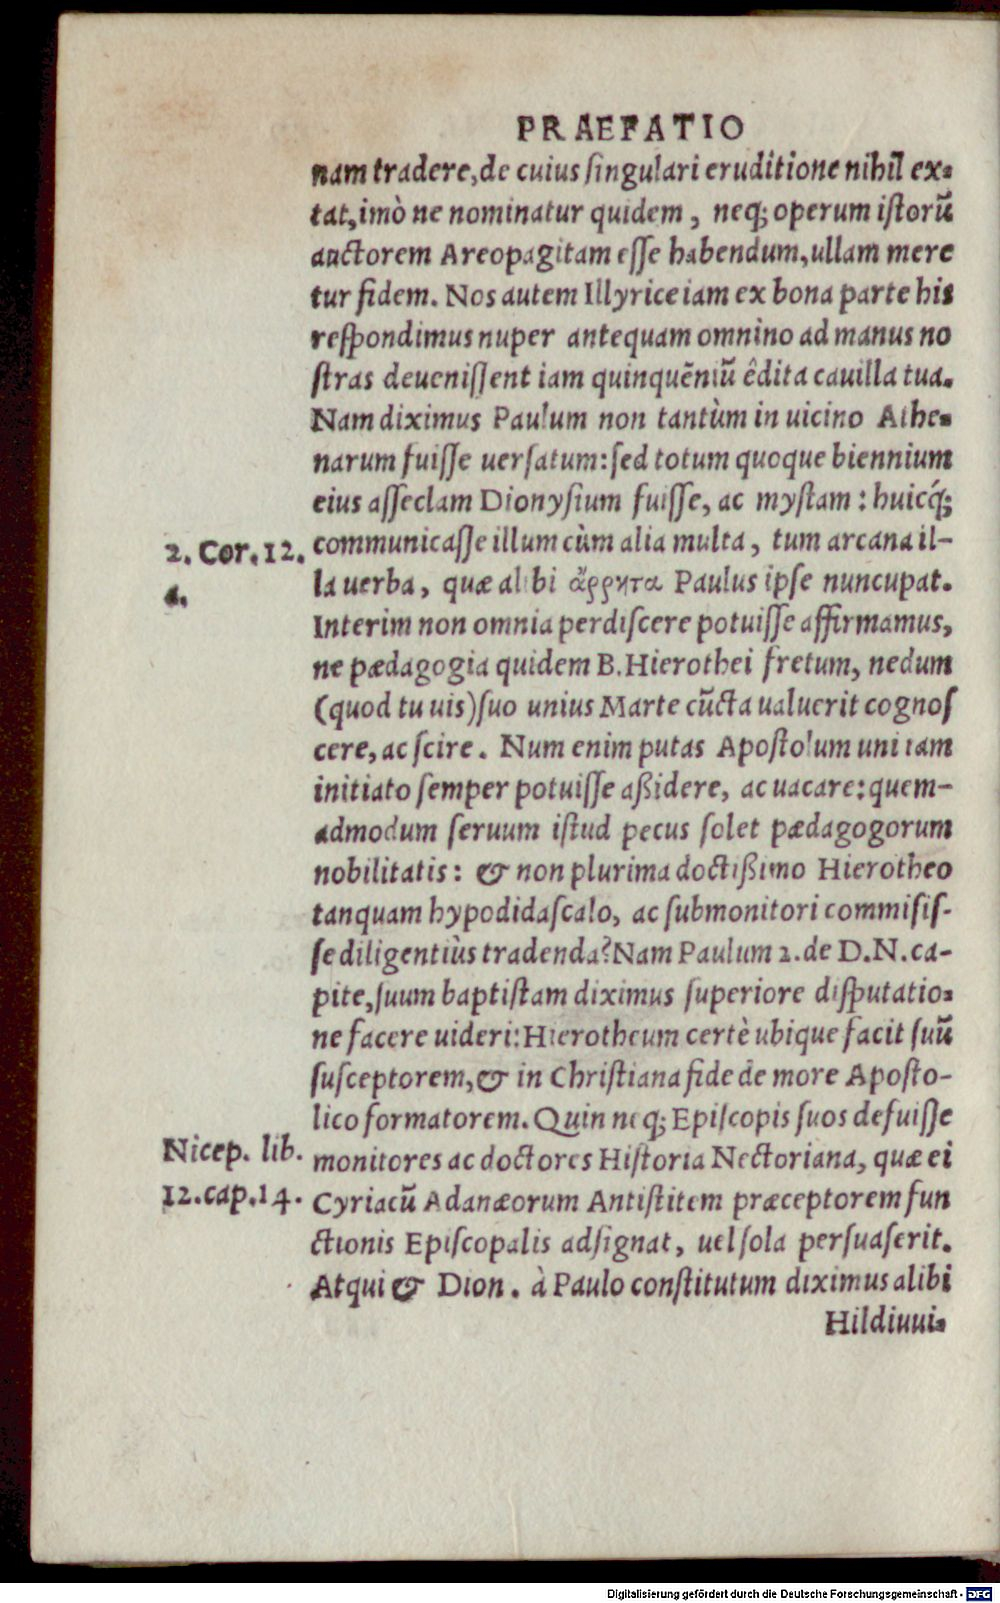 PRAEFATIO
nam tradere, de cuius ſingulari eruditione nihil ex=
tat, imò ne nominatur quidem, neq; operum iſtorũ
auctorem Areopagitam eſſe habendum, ullam mere
tur fidem. Nos autem Illyrice iam ex bona parte his
reſpondimus nuper antequam omnino ad manus no
ſtras deueniſſent iam quinquẽniũ êdita cauilla tua.
Nam diximus Paulum non tantùm in uicino Athe=
narum fuiſſe uerſatum: ſed totum quoque biennium
eius aſſeclam Dionyſium fuiſſe, ac myſtam: huicq́;
2. Cor. 12.
a.
communicaſſe illum cùm alia multa, tum arcana il-
la uerba, quæ alibi ἄῤῥητα Paulus ipſe nuncupat.
Interim non omnia perdiſcere potuiſſe affirmamus,
ne pædagogia quidem B. Hierothei fretum, nedum
(quod tu uis) ſuo unius Marte cũcta ualuerit cognoſ
cere, ac ſcire. Num enim putas Apoſtolum uni tam
initiato ſemper potuiſſe aßidere, ac uacare: quem-
admodum ſeruum iſtud pecus ſolet pædagogorum
nobilitatis: & non plurima doctißimo Hierotheo
tanquam hypodidaſcalo, ac ſubmonitori commiſiſ-
ſe diligentiùs tradenda? Nam Paulum 2. de D. N. ca-
pite, ſuum baptiſtam diximus ſuperiore diſputatio=
ne facere uideri: Hierotheum certè ubique facit ſuũ
ſuſceptorem, & in Chriſtiana fide de more Apoſto-
lico formatorem. Quin neq; Epiſcopis ſuos defuiſſe
Nicep. lib.
12. cap. 14.
monitores ac doctores Hiſtoria Nectoriana, quæ ei
Cyriacũ Adanæorum Antiſtitem præceptorem fun
ctionis Epiſcopalis adſignat, uel ſola perſuaſerit.
Atqui & Dion. à Paulo conſtitutum diximus alibi
Hilduui=
Digitalisierung gefördert durch die Deutsche Forschungsgemeinschaft - DFG